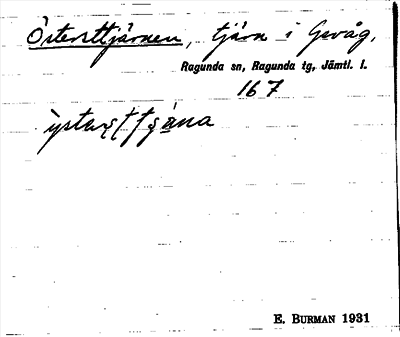 Östersttjärnen, tjärn i Gevåg.
Ragunda sn, Ragunda tg, Jämtl. l.
167
E. BURMAN 1931